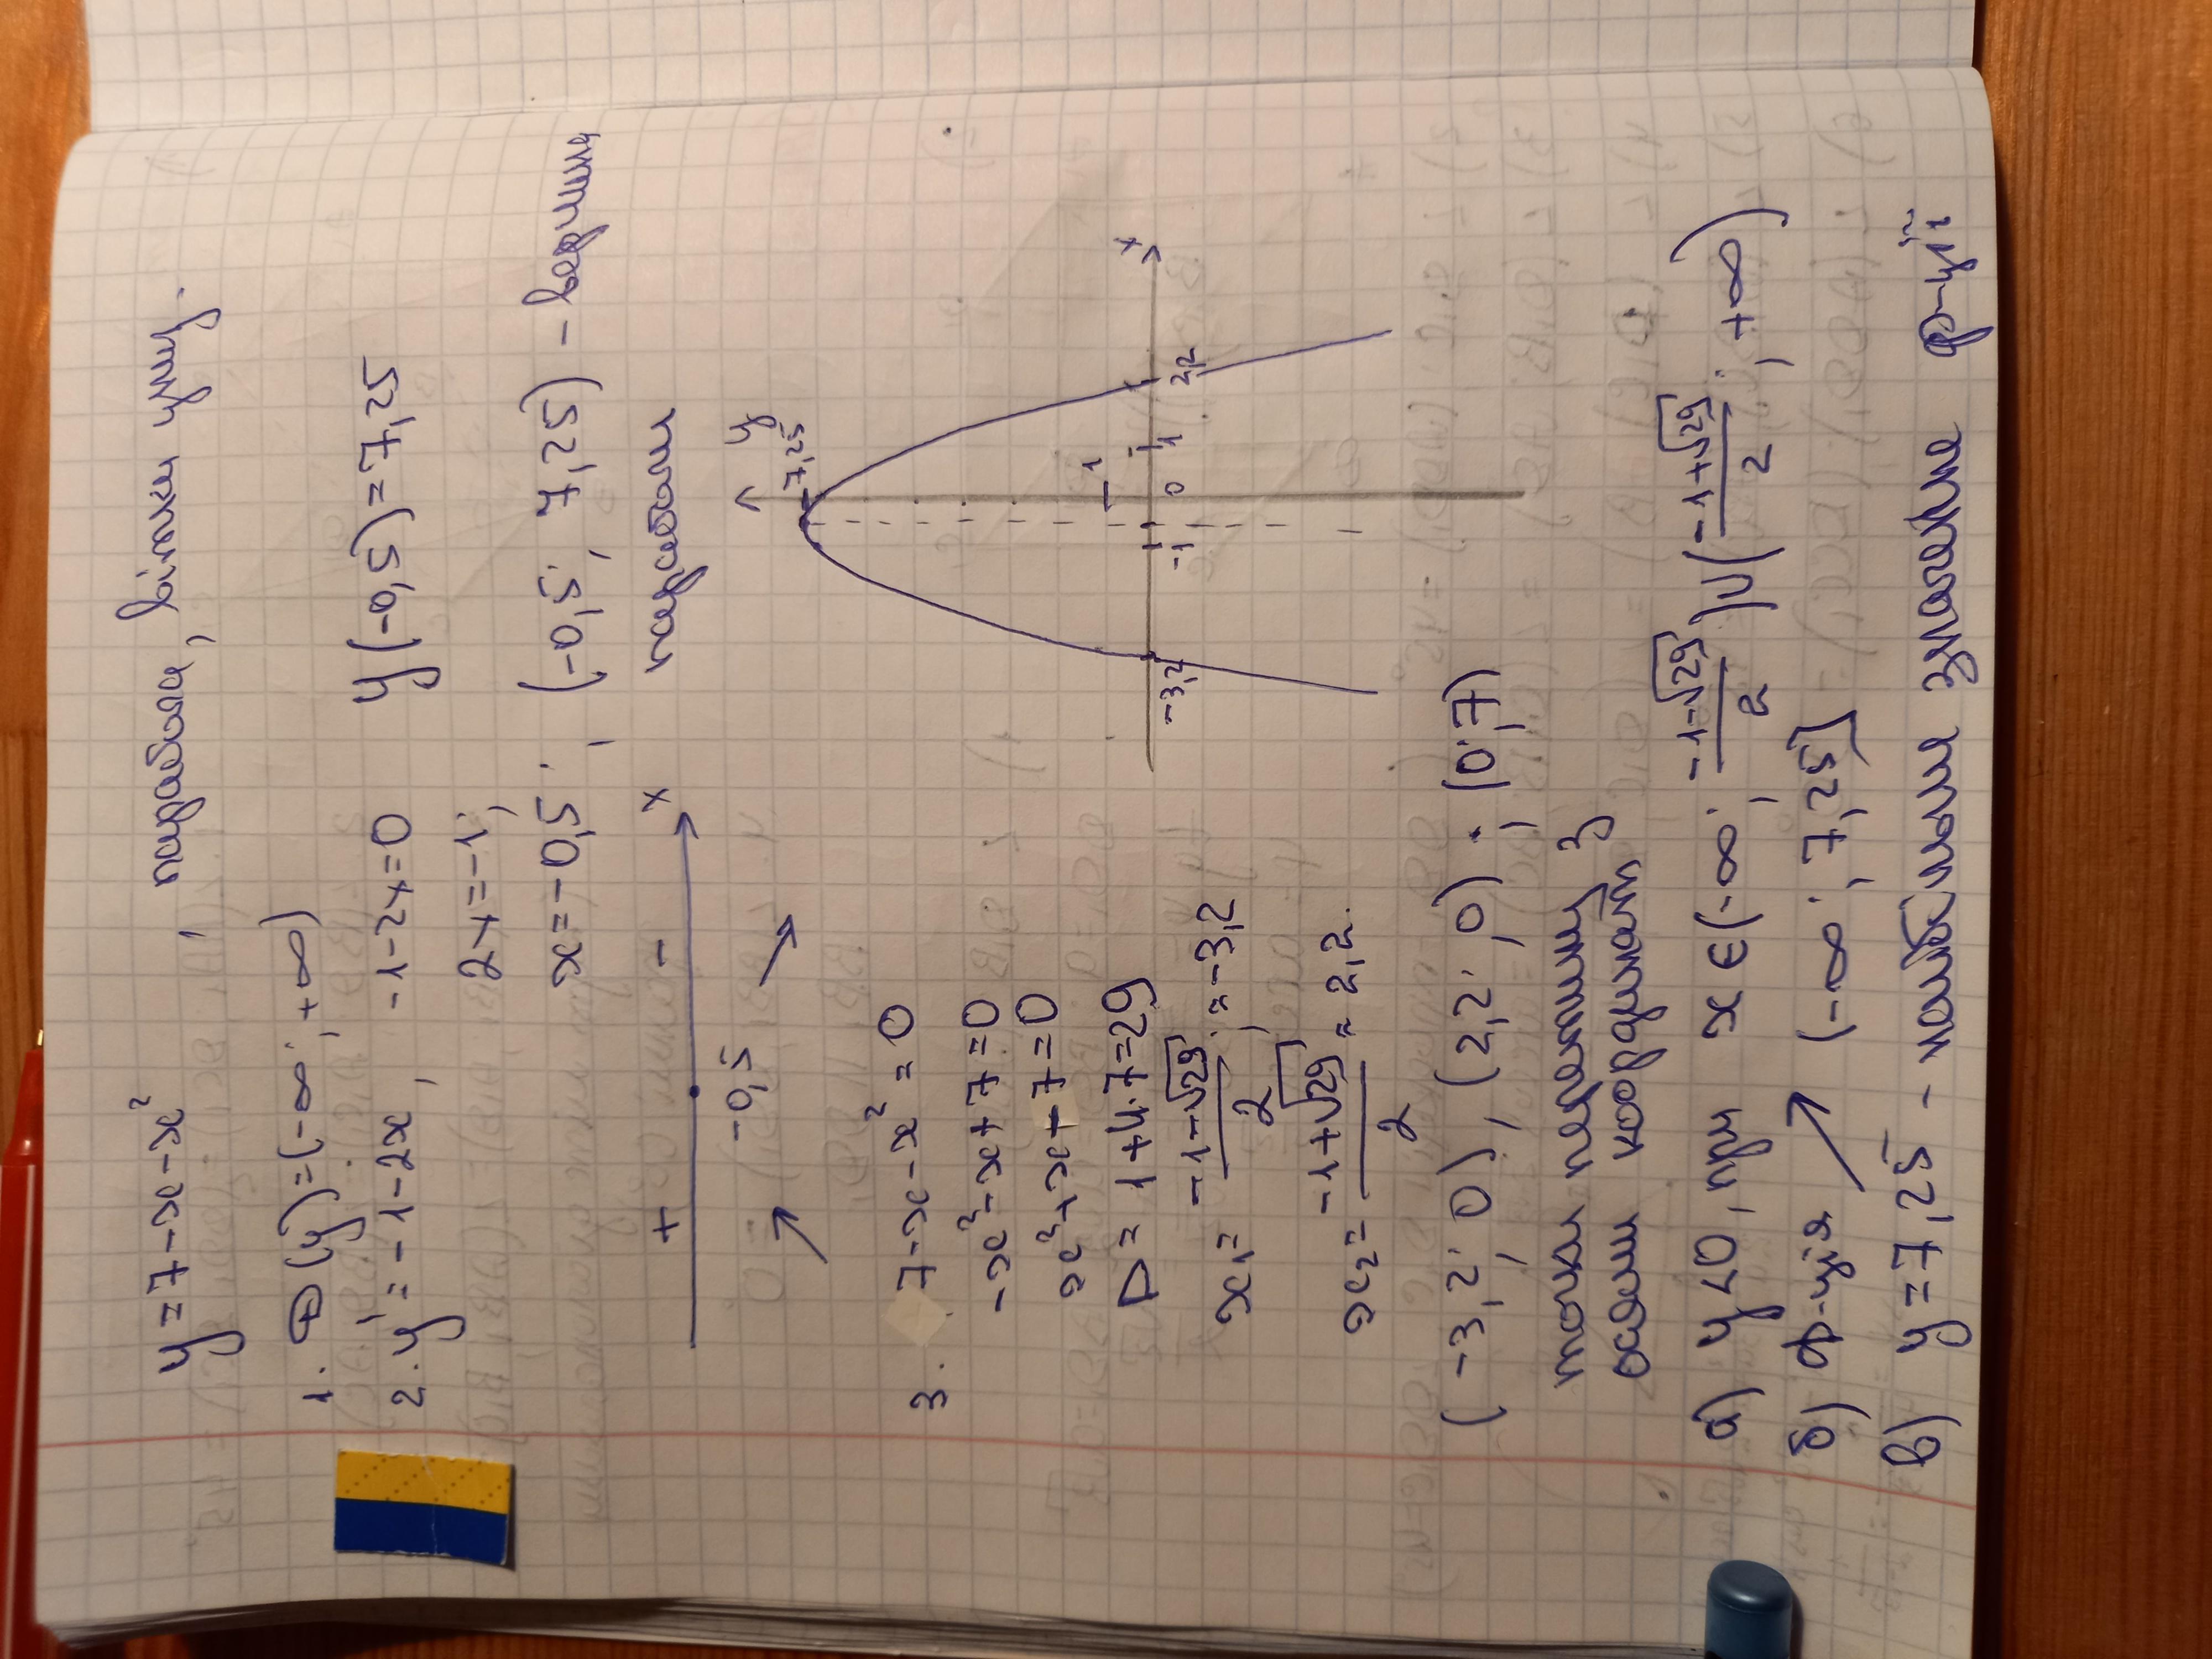 y = 7 - x - x², парабола, вітки униз.
1. D(y) = (-∞; +∞)
2. y' = -1 - 2x, -1 - 2x = 0 y(-0,5) = 7,25
2x = -1;
x = -0,5. ; (-0,5; 7,25) - вершина
параболи
+ - x
-0,5
y
7,25
1
-3,2 -1 0 1 2,2 x
3. 7 - x - x² = 0
-x² - x + 7 = 0
x² + x - 7 = 0
D = 1 + 4·7 = 29
x₁ = (-1-√29)/2 ; ≈ -3,2
x₂ = (-1+√29)/2 ≈ 2,2.
(-3,2; 0), (2,2; 0); (0;7)
точки перетину з
осями координат
а) y < 0, при x ∈ (-∞; (-1-√29)/2) ∪ ((-1+√29)/2; +∞)
б) ф-ція ↗ (-∞; 7,25]
в) y = 7,25 - найбільше значення ф-ції